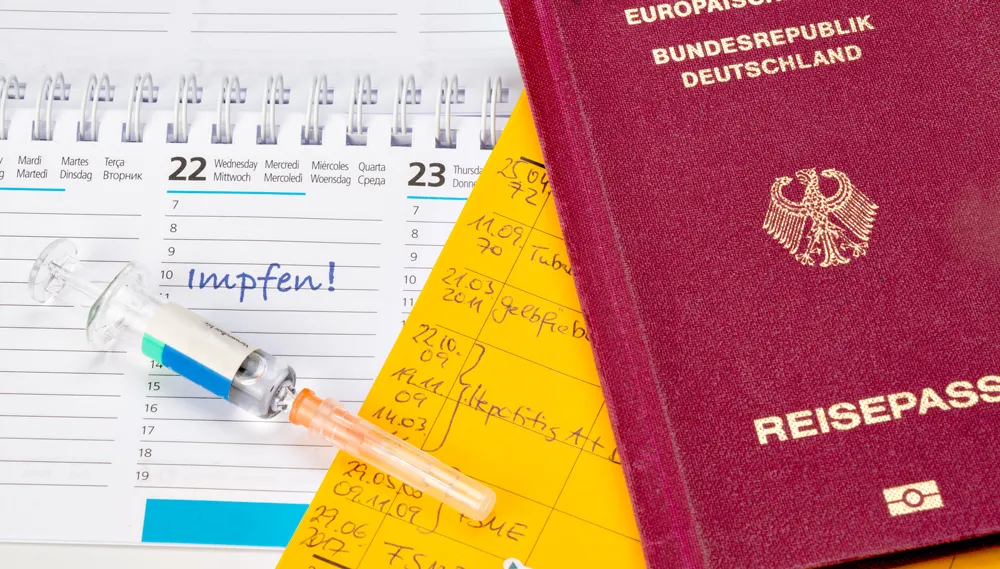 Mardi Martes Terça
Martedì Dinsdag Вторник
22 Wednesday Mercredi Miércoles Quarta
Mittwoch Mercoledì Woensdag Среда
23
7
8
9
10 impfen!
14
15
16
17
18
19
7
8
9
10
11
25.04.
72
11.09.
70
21.03.
2011 gelbfieb
22.10.
09
19.11.
09 Hepatitis A +
14.03
29.05.00
09.11.09 FSME
29.06
2017
BUNDESREPUBLIK
DEUTSCHLAND
REISEPASS